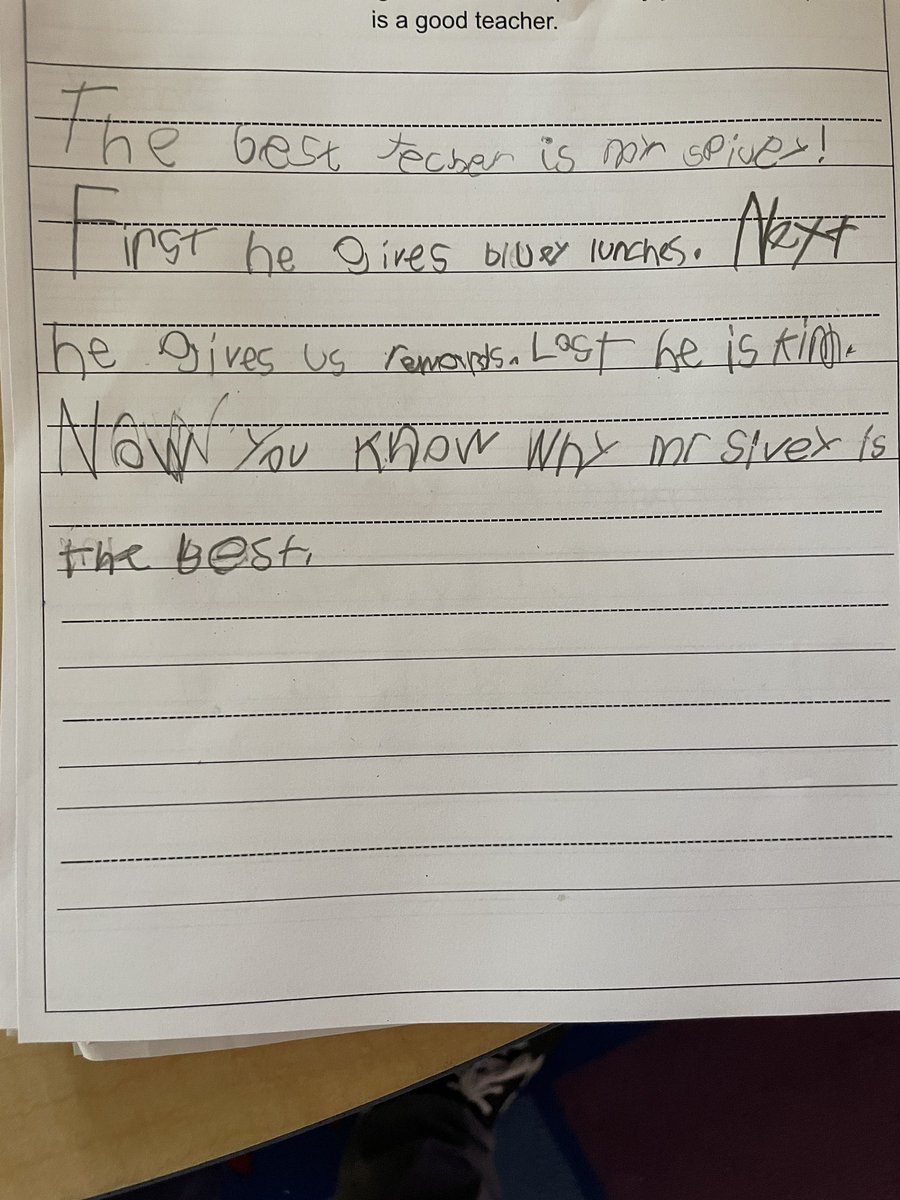 is a good teacher.
The best techer is mr spivey!
First he gives bluey lunches. Next
he gives us rewards. Last he is kind.
Now you know why mr sivey is
the best.